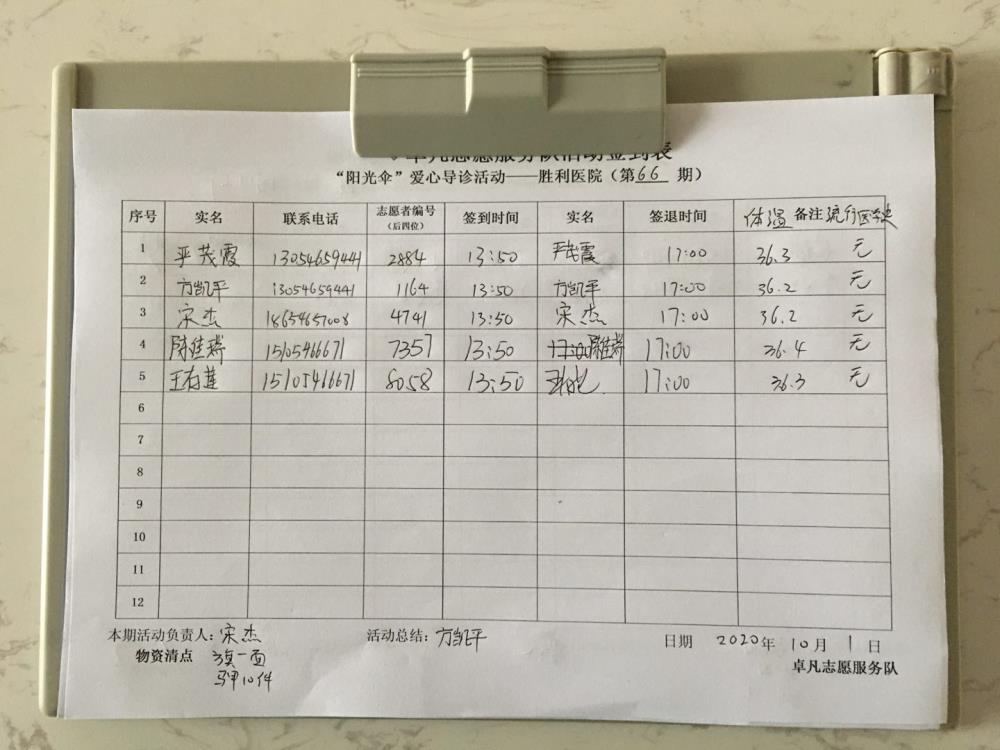 卓凡志愿服务队活动签到表
“阳光伞”爱心导诊活动——胜利医院（第66 期）
序号 实名 联系电话 志愿者编号（后四位） 签到时间 实名 签退时间 体温 备注 流行医学史
1 严茂霞 13054659441 2884 13:50 严茂霞 17:00 36.3 无
2 方凯平 13054659441 1164 13:50 方凯平 17:00 36.2 无
3 宋杰 18654657008 4741 13:50 宋杰 17:00 36.2 无
4 陈桂瑞 1510546671 7357 13:50 陈桂瑞 17:00 36.4 无
5 王有莲 15105416671 8058 13:50 17:00 36.3 无
6
7
8
9
10
11
12
本期活动负责人：宋杰 活动总结：方凯平 日期 2020年 10月 1日
物资清点 旗一面 卓凡志愿服务队
马甲10件